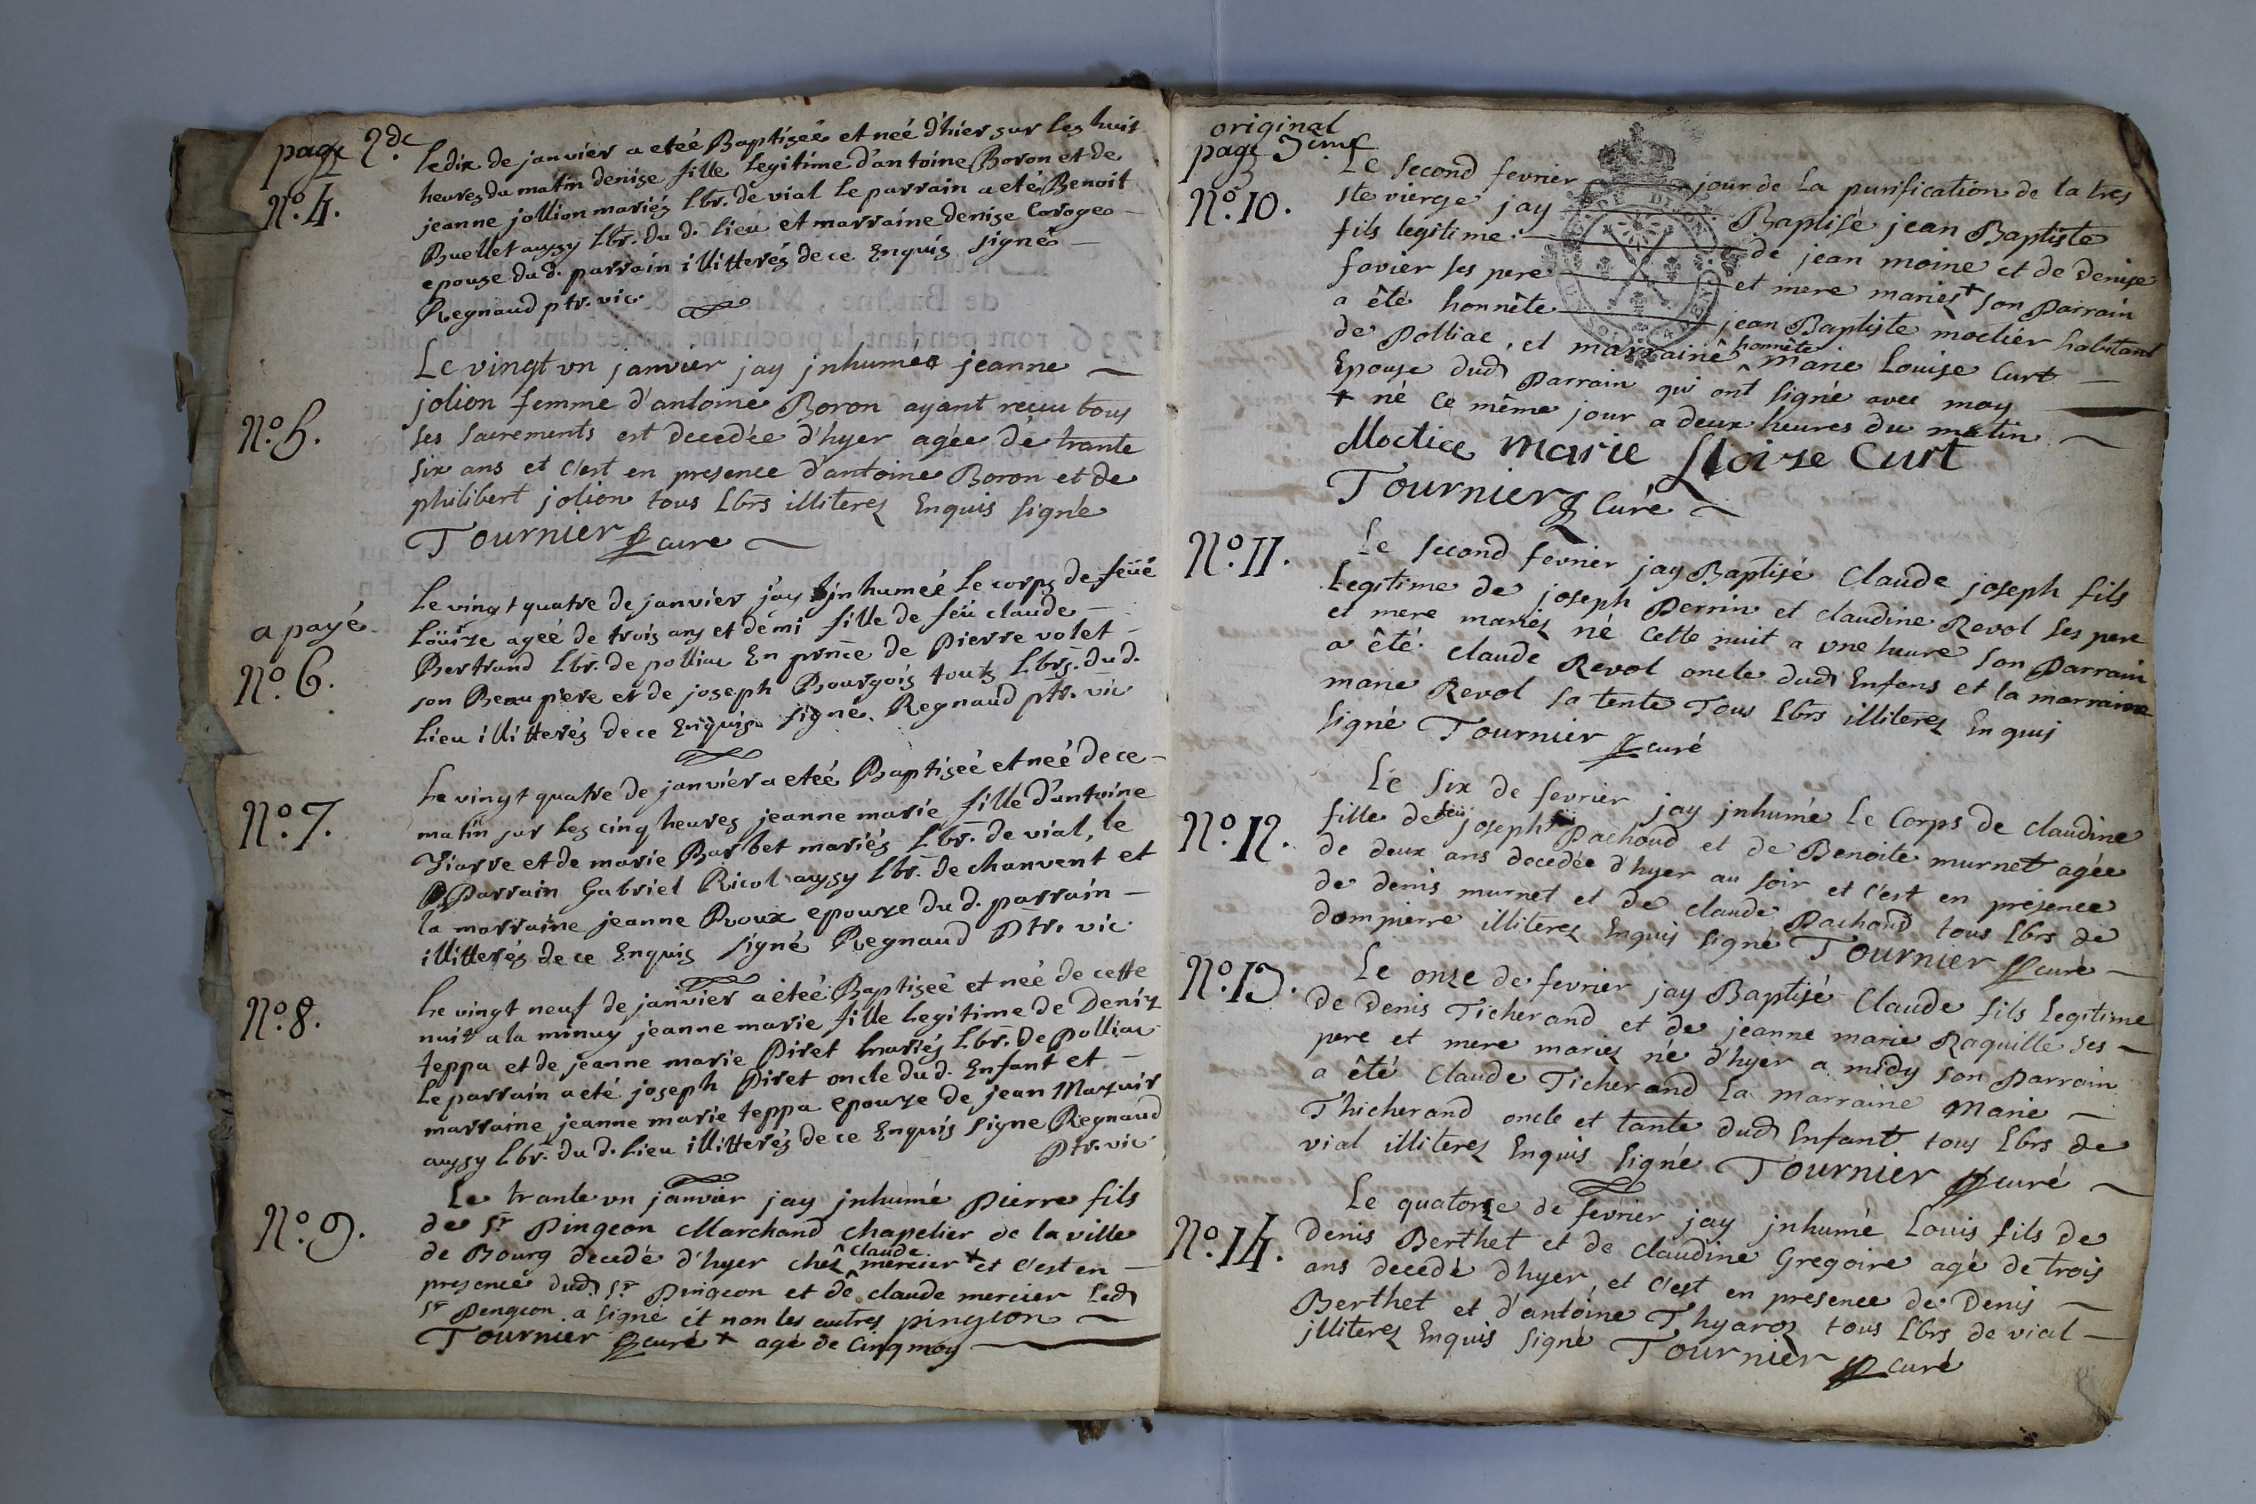 page 2de
N°. 4.
Le dix de janvier a etéé Baptiseé et neé d'hier sur les huit
heures du matin denise fille legitime d'antoine Boron et de
jeanne jollion mariés Lbr. de vial le parrain a eté Benoit
Buellet aussy Lbr. du d. lieu et marraine denise Coroge
epouse du d. parrain illitterés de ce Enquis signé
Regnaud ptr. vic
N°. 5.
Le vingt un janvier jay jnhumeé jeanne
jolion femme d'antoine Boron ayant recuu tous
ses sacrements est decedée d'hyer agée de trante
six ans et c'est en presence d'antoine Boron et de
philibert jolion tous Lbrs illiterez Enquis signé
Tournier curé
a payé
N°. 6.
Le vingt quatre de janvier j'ay jnhumeé le corps de feüe
Loüize ageé de trois ans et demi fille de feü claude
Bertrand Lbr. de polliac En prnce de Pierre volet
son Beau pere et de joseph Bourgois touts Lbrs. du d.
lieu illitterés de ce Enquis signé. Regnaud ptr. vic
N°. 7.
Le vingt quatre de janvier a eteé Baptiseé et neé de ce
matin sur les cinq heures jeanne marie fille d'antoine
Tiarre et de marie Barbet mariés Lbr. de vial, le
Parrain Gabriel Ricol aussy Lbr. de chanvent et
la marraine jeanne Roux epouze du d. parrain
illitterés de ce Enquis signé Regnaud Ptr. vic
N°. 8.
Le vingt neuf de janvier a éteé Baptiseé et neé de cette
nuit a la minuy jeanne marie fille legitime de Deniz
teppa et de jeanne marie Piret mariés Lbr. de Polliac
le parrain a eté joseph Piret oncle du d. Enfant et
marraine jeanne marie teppa epouze de jean Mazuir
aussy Lbr. du d. lieu illitterés de ce Enquis signe Regnaud
Ptr. vic
N°. 9.
Le trante un janvier jay jnhumé Pierre fils
de Sr Pingeon Marchand chapelier de la ville
de Bourg decedé d'hyer chez claude mercier + et c'est en
presence dud. Sr Pingeon et de claude mercier Led
Sr Pengeon a signé et non les autres pingeon
Tournier curé + agé de Cinq moy
original
page 3eme
N°. 10.
Le second fevrier jour de la purification de la tres
Ste vierge jay Baptisé jean Baptiste
fils legitime de jean moine et de Denise
favier ses pere et mere mariez + son Parrain
a êté honnête jean Baptiste moctier habitant
de Polliac, et marraine honnête Marie Louise Curt
Epouse dud Parrain qui ont signé avec moy
+ né ce même jour a deux heures du matin
Moctice marie Lloise Curt
Tournier Curé
N°. 11.
Le second fevrier jay Baptisé Claude joseph fils
Legitime de joseph Perrin et claudine Revol ses pere
et mere mariez né cette nuit a une heure son Parrain
a êté claude Revol oncle dud Enfans et la marraine
marie Revol sa tente Tous Lbrs illiterez Enquis
signé Tournier curé
N°. 12.
Le six de fevrier jay jnhumé le Corps de claudine
fille de feü joseph Pachoud et de Benoite murnet agée
de deux ans decedée d'hyer au soir et c'est en presence
de denis murnet et de claude Pachoud tous Lbrs de
dompierre illiterez Enquis signé Tournier curé
N°. 13.
Le onze de fevrier jay Baptisé Claude fils legitime
de Denis Ticherand et de jeanne marie Raquille ses
pere et mere mariez né d'hyer a midy son Parrain
a êté Claude Ticherand la marraine Marie
Thicherand oncle et tante dud Enfant tous Lbrs de
vial illiterez Enquis signé Tournier curé
N°. 14.
Le quatorze de fevrier jay jnhumé Louis fils de
Denis Berthet et de claudine Gregoire agé de trois
ans decedé d'hyer, et c'est en presence de Denis
Berthet et d'antoine Thyaroz tous Lbrs de vial
jlliterez Enquis signé Tournier curé